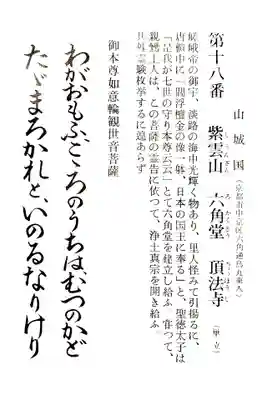 山城国
第十八番　紫雲山　六角堂　頂法寺（単立）
しうんざん　ろっかくどう　ちょうほうじ
（京都市中京区六角通烏丸東入）
嵯峨帝の御宇、淡路の海中光輝く物あり、里人怪みて引揚るに、
唐櫃中に「閻浮檀金の像一躰、日本の国王に奉る」と、聖徳太子は
「是我が七世の守り本尊云云」とて六角堂を建立し給ふ
親鸞上人は、この菩薩の霊告に依つて、浄土真宗を開き給ふ
霊験枚挙するに遑あらず
御本尊如意輪観世音菩薩
わがおもふこころのうちはむつのかど
たゞまろかれと、いのるなりけり